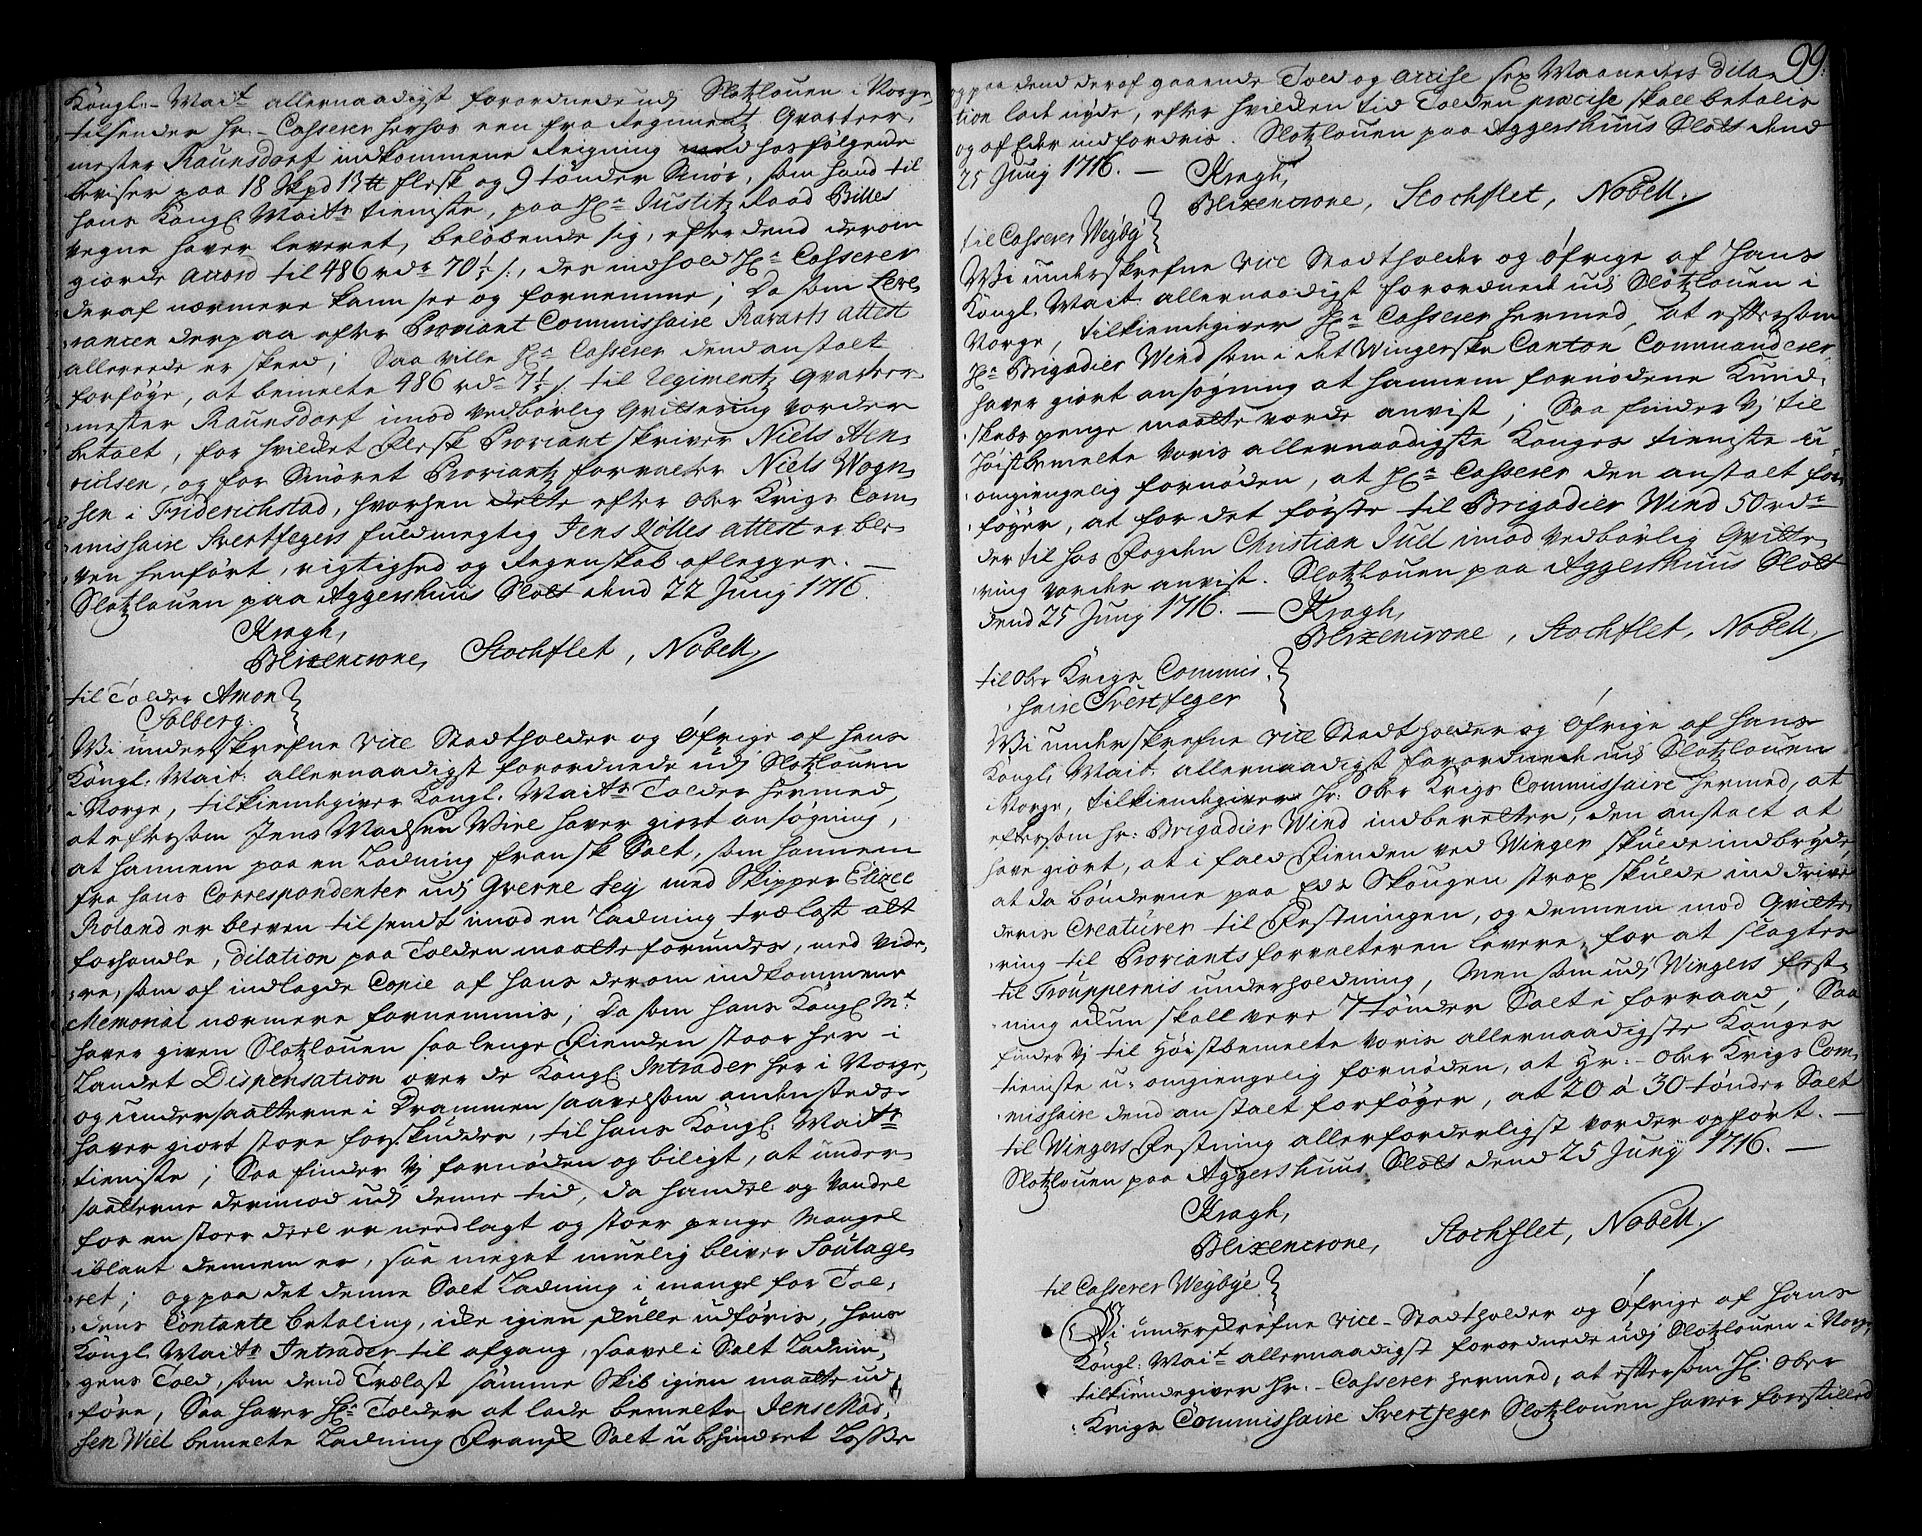 Kongl:- Mait allernaadigst forordnede udj Slotzlouen i Norge,
tilsender hr:- Casserer herhos een fra Regimentz Qvarteer,
mester Raunsdorf indkommene Reigning med hosfølgende
beviser paa 18 Skpd 13 tt flesk og 9 tønder Smør, som hand til
hans Kongl Maits tieniste, paa Hr Justitz Raad Billes
vegne haver leveret, beløbende sig, efter dend derom
giorde accord til 486 rdr 70½ s:, des indhold Hr Casserer
deraf nærmere kand see og fornemme; Da som Leve,
rancen derpaa efter Proviant Commissaire Rararts attest
allerede er skeed; Saa ville Hr Casserer dend anstalt
forføge, at bemelte 486 rdr 7½ s. til Regimentz Qvarteer-
mester Raunsdorf imod vedbørlig Qvittering vorder
betalt, for hvilcket flesk Proviantskriver Niels Hen,
richsen, og for Smøret Proviantz forvalter Niels Wogn,
sen i Friderichstad, hvorhen dette efter Ober Krigs Com,
missaire Svertfegers fuldmegtig Jens Kølles attest er ble,
ven henført, rigtighed og Regenskab aflegger. —
Slotzlouen paa Aggershuus Slott dend 22 Junij 1716.
Kragh,
Blixencrone, Stochflet, Nobell,
til Tolder Amon
Solberg.
Wi underskrefne Vice Stadtholder og Øfrige af hans
Kongl. Mait: allernaadigst forordnede udj Slotzlouen
i Norge, tilkiendegiver Kongl. Maits Tolder hermed,
at eftersom Jens Madsen Wiel haver giort ansøgning,
at hannem paa en Ladning fransk Salt, som hannem
fra hans Correspondenter udj Qverne Seij med Skipper Elizel
Roland er bleven tilsendt imod en Ladning trælast att
forhandle, dilation paa Tolden maatte forundes, med vide,
re, som af indlagde Copie af hans derom indkommene
Memorial nærmere fornemmis; Da som hans Kongl Mt:
haver given Slotzlouen saa lenge Fienden staar her i
Landet Dispensation over de Kongl Intrader her i Norge,
og undersaatterne i Drammen saavelsom andensteds
haver giort store forskudde, til hans Kongl: Maits
tieniste; Saa finder Vj fornøden og biligt, at under-
saatterne derimod udj denne tid, da handel og vandel
for en stoer deel er nedlagt og stoer penge Mangel
iblant dennem er, saa meget muelig bliver Soulage,
ret; og paa det denne Salt Ladning i mangel for Tol,
dens Contante betaling, icke igien skulle udføris, hans
Kongl Maits Intrader til afgang, saavel i Salt Ladnin,
gens Told, som dend Trælast samme Skib igien maatte ud
føre, Saa haver Hr Tolder at lade bemelte Jens Mad,
sen Wiel bemelte Ladning Fransk Salt ubehindret Losse
99:
og paa dend deraf gaaende Told og accise sex Maaneders dila-
tion lade nyde, efter hvilcken tid Tolden præcise skall betalis
og af Eder indfordris. Slotzlouen paa Aggershuus Slott dend
25 Junij 1716. — Kragh,
Blixencrone, Stochflet, Nobell.
til Casserer Weyby
Wi underskrefne Vice Stadtholder og Øfrige af Hans
Kongl. Mait: allernaadigst forordnede udj Slotzlouen i
Norge, tilkiendegiver Hr Casserer hermed, at eftersom
Hr Brigadier Wind som i det Wingerske Canton Commanderer
haver giort ansøgning at hannem fornødene Kund,
skabs penge maatte vorde anvist; Saa finder Vj til
Høistbemelte voris allernaadigste Konges tieniste u-
omgiengelig fornøden, at Hr Casserer den anstalt for
føger, at for det første til Brigadier Wind 50 rdr
der til hos Fogden Christian Juel imod vedbørlig Qvitte,
ring vorder anvist. Slotzlouen paa Aggershuus Slott
dend 25 Junij 1716. — Kragh,
Blixencrone, Stochflet, Nobell,
til Ober Krigs Commis,
saire Svertfeger
Wi underskrefne Vice Stadtholder og Øfrige af hans
Kongl. Mait: allernaadigst forordnede udj Slotzlouen
i Norge, tilkiendegiver Hr: Ober Krigs Commissaire hermed, at
eftersom hr: Brigadier Wind indberetter, den anstalt at
have giort, at i fald Fienden ved Winger skulde indbryde,
at da bønderne paa Eds Skougen strax skulde inddrive
deris Creaturer til Festningen, og dennem mod Qvitte,
ring til Proviantsforvalteren levere, for at slagtes
til Trouppernis underholdning, Men som udj Wingers fest,
ning icun skall vere 7 tønder Salt i forraad; Saa
finder Vj til Høistbemelte voris allernaadigste Konges
tieniste u-omgiengelig fornøden, at Hr:- Ober Krigs Com,
missaire dend anstalt forføger, at 20 à 30 tønder Salt
til Wingers Festning allerforderligst vorder opført. —
Slotzlouen paa Aggershuus Slott dend 25 Junij 1716. —
Kragh,
Blixencrone, Stochflet, Nobell.
til Casserer Weybye
Wi underskrefne vice-Stadtholder og Øfrige af Hans
Kongl: Mait allernaadigst forordnede udj Slotzlouen i Norge,
tilkiendegiver hr:- Casserer hermed, at eftersom Hr: Ober
Krigs Commissaire Svertfeger Slotzlouen haver forestilled